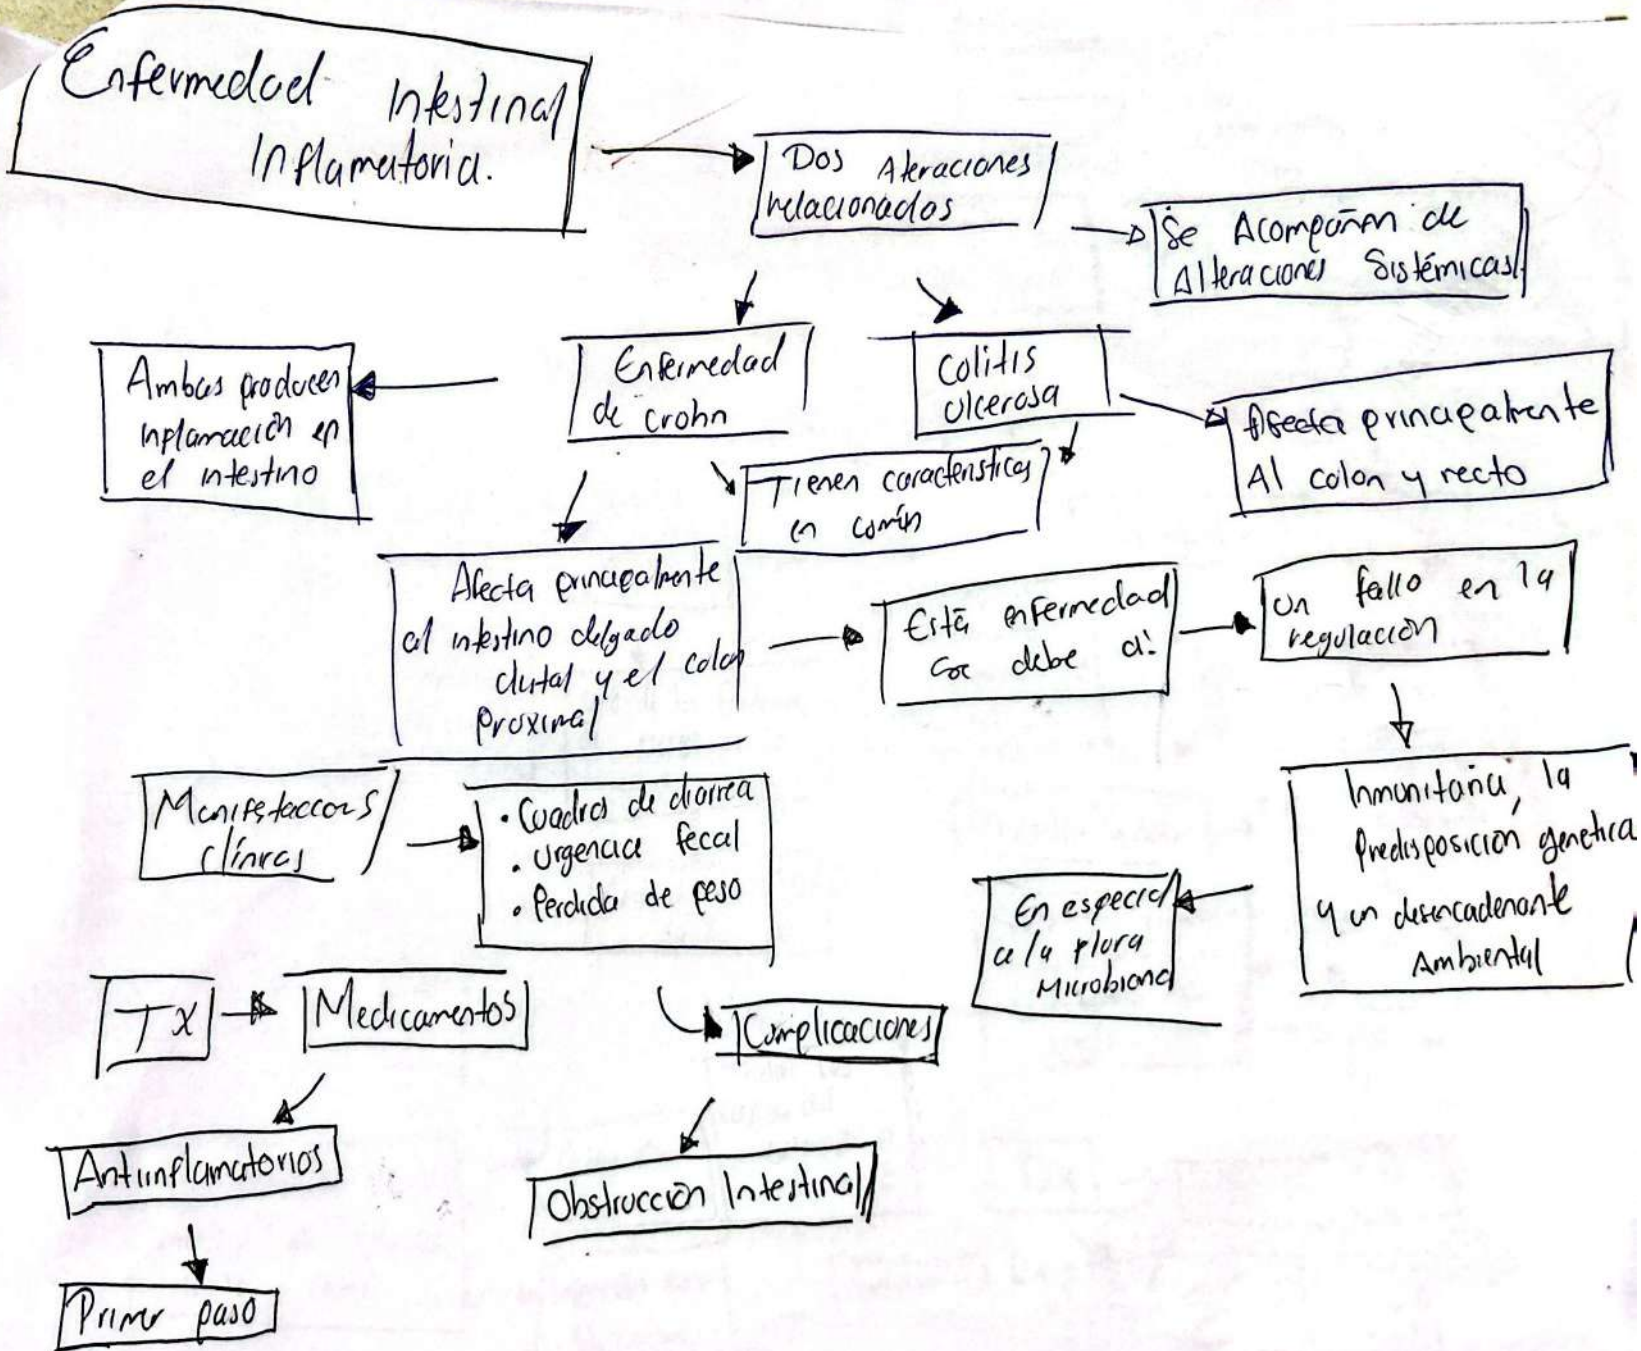 Enfermedad Intestinal
Inflamatoria.
Dos Alteraciones
relacionados
Se Acompañan de
Alteraciones Sistémicas
Ambas producen
inflamación en
el intestino
Enfermedad
de crohn
Colitis
Ulcerosa
Afecta principalmente
Al colon y recto
Tienen caracteristicas
en común
Afecta principalmente
al intestino delgado
distal y el colon
proximal
Está enfermedad
se debe a:
un fallo en la
regulación
Inmunitaria, la
Predisposición genetica
y un desencadenante
Ambiental
En especial
a la flora
Microbiana
Manifestaciones
clínicas
• Cuadros de diarrea
• Urgencia fecal
• Perdida de peso
TX
Medicamentos
Complicaciones
Antiinflamatorios
Obstrucción Intestinal
Primer paso